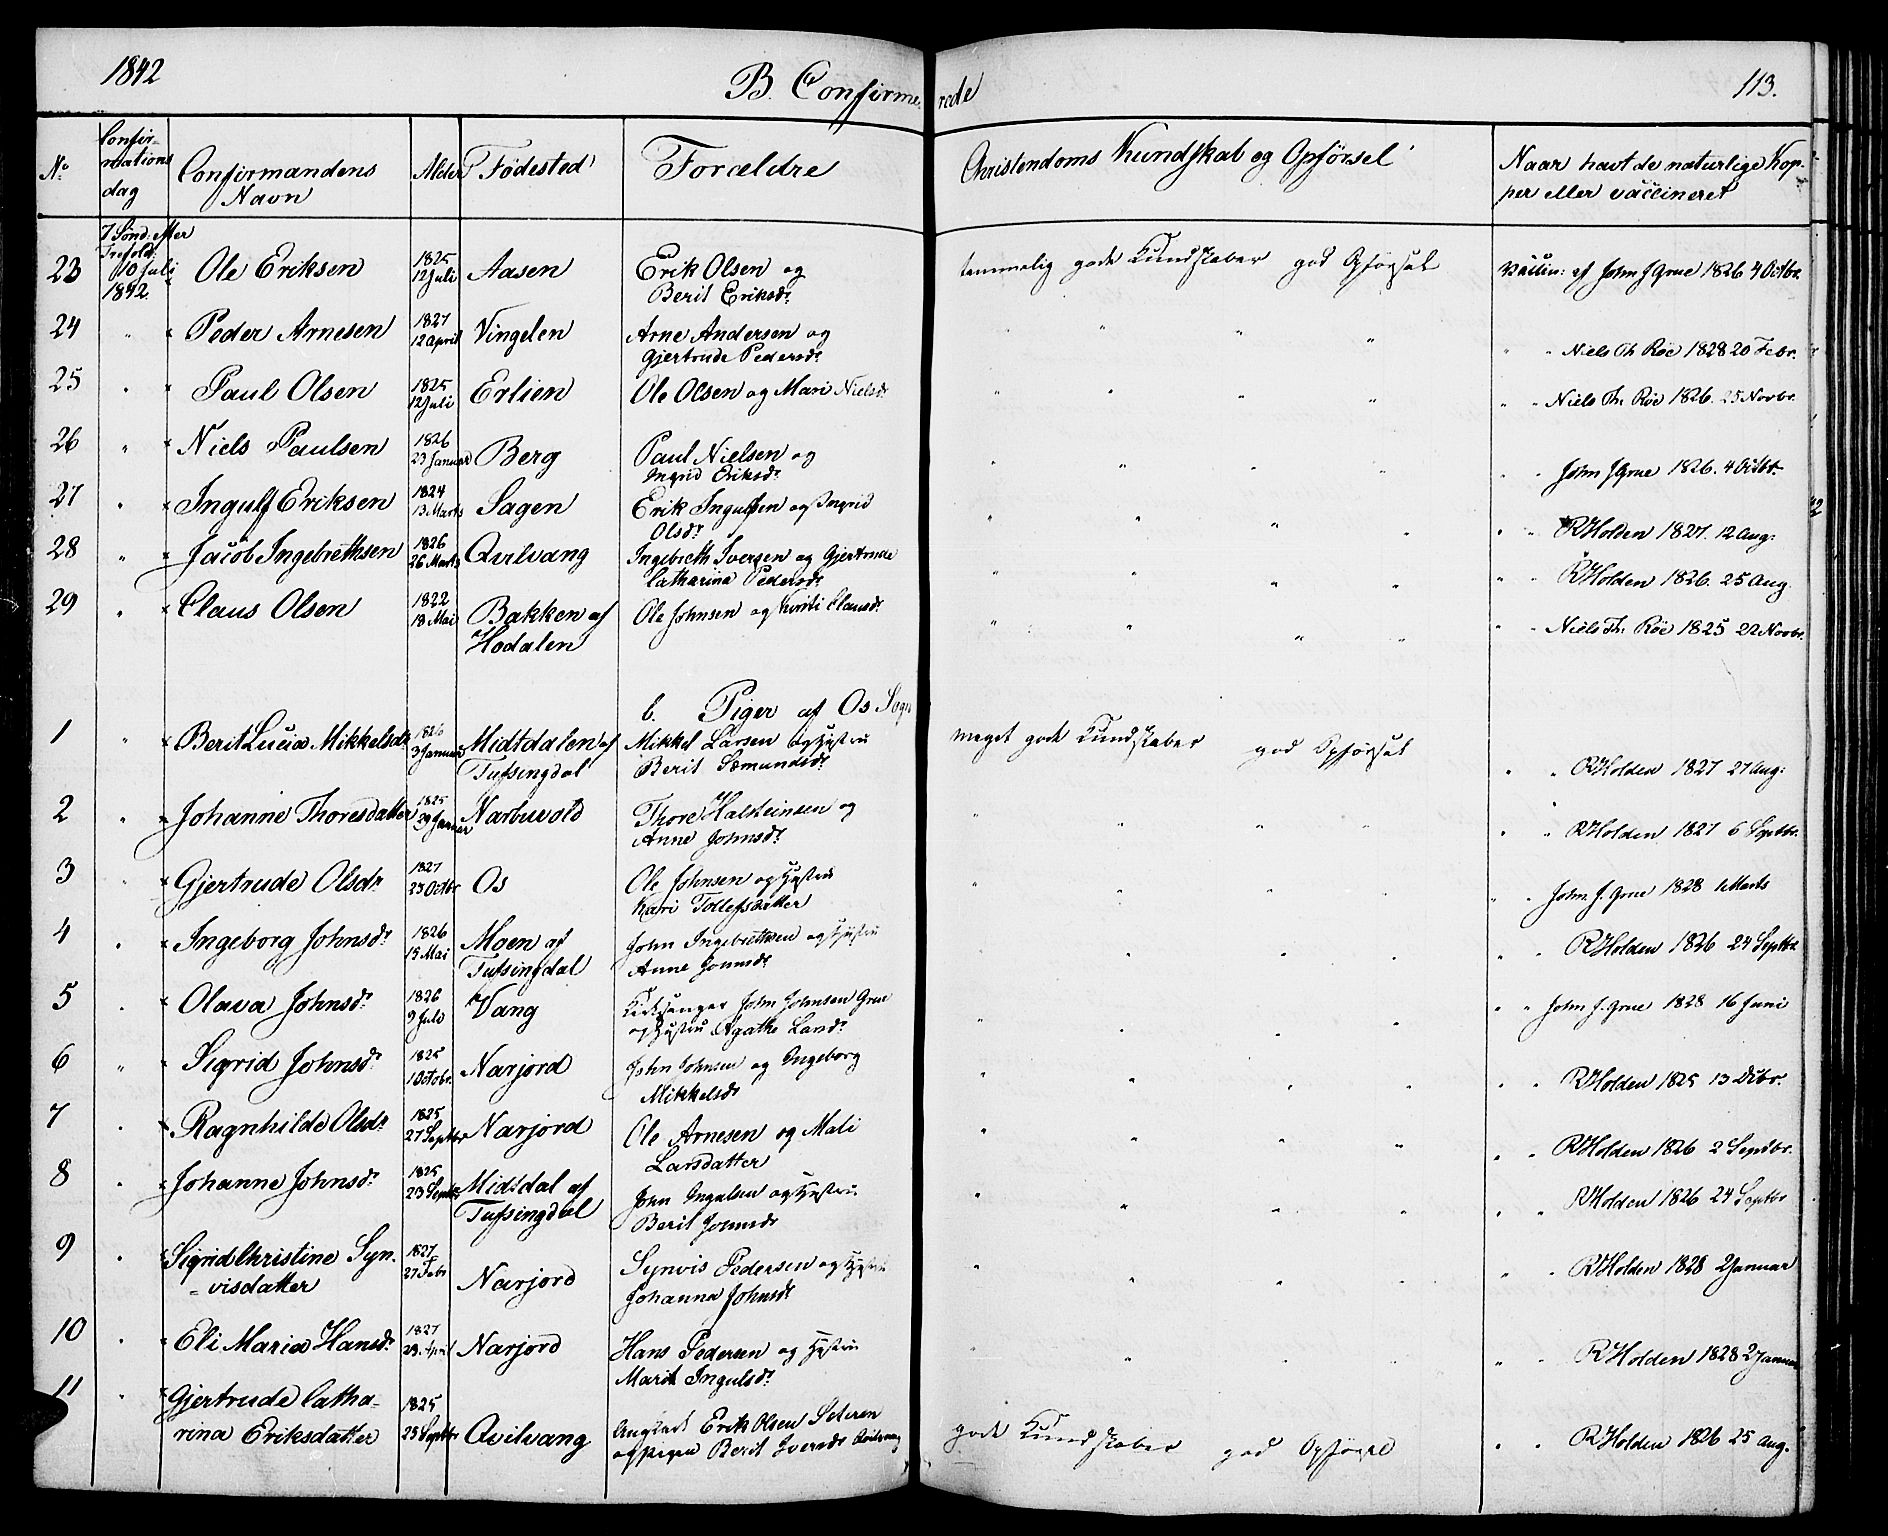 1842
B. Confirme rede
113.
No
Confir-
mations
dag
Confirmandens
Navn
Alder
Fødested
Forældre
Christendoms Kundskab og Opførsel
Naar havt de naturlige Kop-
per eller vaccineret
7 Sønd: efter
Trefold:
10 Juli
1842.
23 Ole Eriksen 1825 12 Juli Aasen Erik Olsen og
Berit Eriksdr temmelig gode Kundskaber god Opførsel Vaccin: af John J Grue 1826 4 Octbr.
24 " Peder Arnesen 1827 12 April Vingelen Arne Andersen og
Gjertrude Pedersdr " " " " " " Niels Th Røe 1828 20 Febr.
25 " Paul Olsen 1825 12 Juli Erlien Ole Olsen og Mari Nielsdr " " " " " " Niels Th. Røe 1826. 25 Novbr.
26 " Niels Paulsen 1826 23 Januar Berg Paul Nielsen og
Ingrid Eriksdr " " " " " " John J Grue 1826. 4 Octbr
27 " Ingulf Eriksen 1824 13 Marts Sagen Erik Ingulfsen og Ingrid
Olsdr " " " " " " RHolden 1827. 12 Aug:
28 " Jacob Ingebrethsen 1826 26 Marts Qvilvang Ingebreth Iversen og Gjertrude
Catharina Pedersdr " " " " " " RHolden 1826. 25 Aug
29 " Claus Olsen 1822 18 Mai Bakken af
Hodalen Ole Johnsen og Kirsti Clausdr " " " " " " Niels Th: Røe 1825 22 Novbr.
b. Piger af Os Sogn
1 " Berit Lucia Mikkelsdr 3 Januar Midtdalen af
Tufsingdal Mikkel Larsen og Hustru
Berit Sæmundsdr meget gode Kundskaber god Opførsel " " RHolden 1827 27 Aug:
2 " Johanne Thoresdatter 1825 29 Januar Narbuvold Thore Halsteinsen og
Anne Johnsdr " " " " " " RHolden 1827 6 Septbr.
3 " Gjertrude Olsdr 1827 23 Octbr Os Ole Johnsen og Hustru
Kari Tollefsdatter " " " " " " John J. Grue 1828 1 Marts
4 " Ingeborg Johnsdr 1826 15 Mai Moen af
Tufsingdal John Ingebrethsen og Hustru
Anne Jonnsdr " " " " " " RHolden 1826 24 Septbr
5 " Olava Johnsdr 1826 9 Vang Kirksanger John Johnsen Grue
og Hustru Agathe Larsdr " " " " " " John J. Grue 1828 16 Juni
6 " Sigrid Johnsdr 1825 1 Octobr. Narjord John Johnsen og Ingeborg
Mikkelsdr " " " " " " RHolden 1825 13 Dcbr.
7 " Ragnhilde Olsdr 1825 27 Septbr Narjord Ole Arnesen og Mali
Larsdatter " " " " " " RHolden 1826 2 Septbr.
8 " Johanne Johnsdr 1825 23 Septbr Midtdal af
Tufsingdal John Ingulsen og Hustru
Berit Johnsdr " " " " " " RHolden 1826 24 Septbr
9 " Sigrid Christine Syn-
visdatter 1827 27 Febr Narjord Synvis Pedersen og Hustru
Johanna Johnsdr " " " " " " RHolden 1828 2 Januar
10 " Eli Maria Hansdr 1827 23 April Narjord Hans Pedersen og Hustru
Marit Ingulsdr " " " " " " RHolden 1828 2 Januar
11 " Gjertrude Catha-
rina Eriksdatter 1825 25 Septbr Qvilvang Ungkarl Erik Olsen Sæteren
og Pigen Berit Iversdr Qvilvang gode Kundskaber god Opførsel " " RHolden 1826 25 Aug.